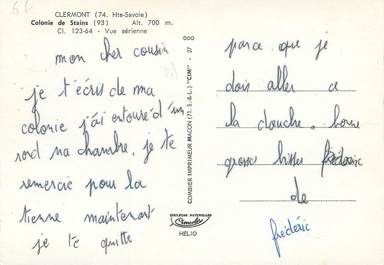 CLERMONT (74. Hte-Savoie)
Colonie de Stains (93) Alt. 700 m.
Cl. 123-64 - Vue aérienne
mon cher cousin
je t'écris de ma
colonie j'ai entouré d'un
rond ma chambre, je te
remercie pour la
tienne maintenant
je te quitte
COMBIER IMPRIMEUR MACON (71. S.-&-L.) "CIM" - 27 000
COULEURS NATURELLES
HELIO
parce que je
dois aller a
la douche. bonne
grosses bises
de
frédéric